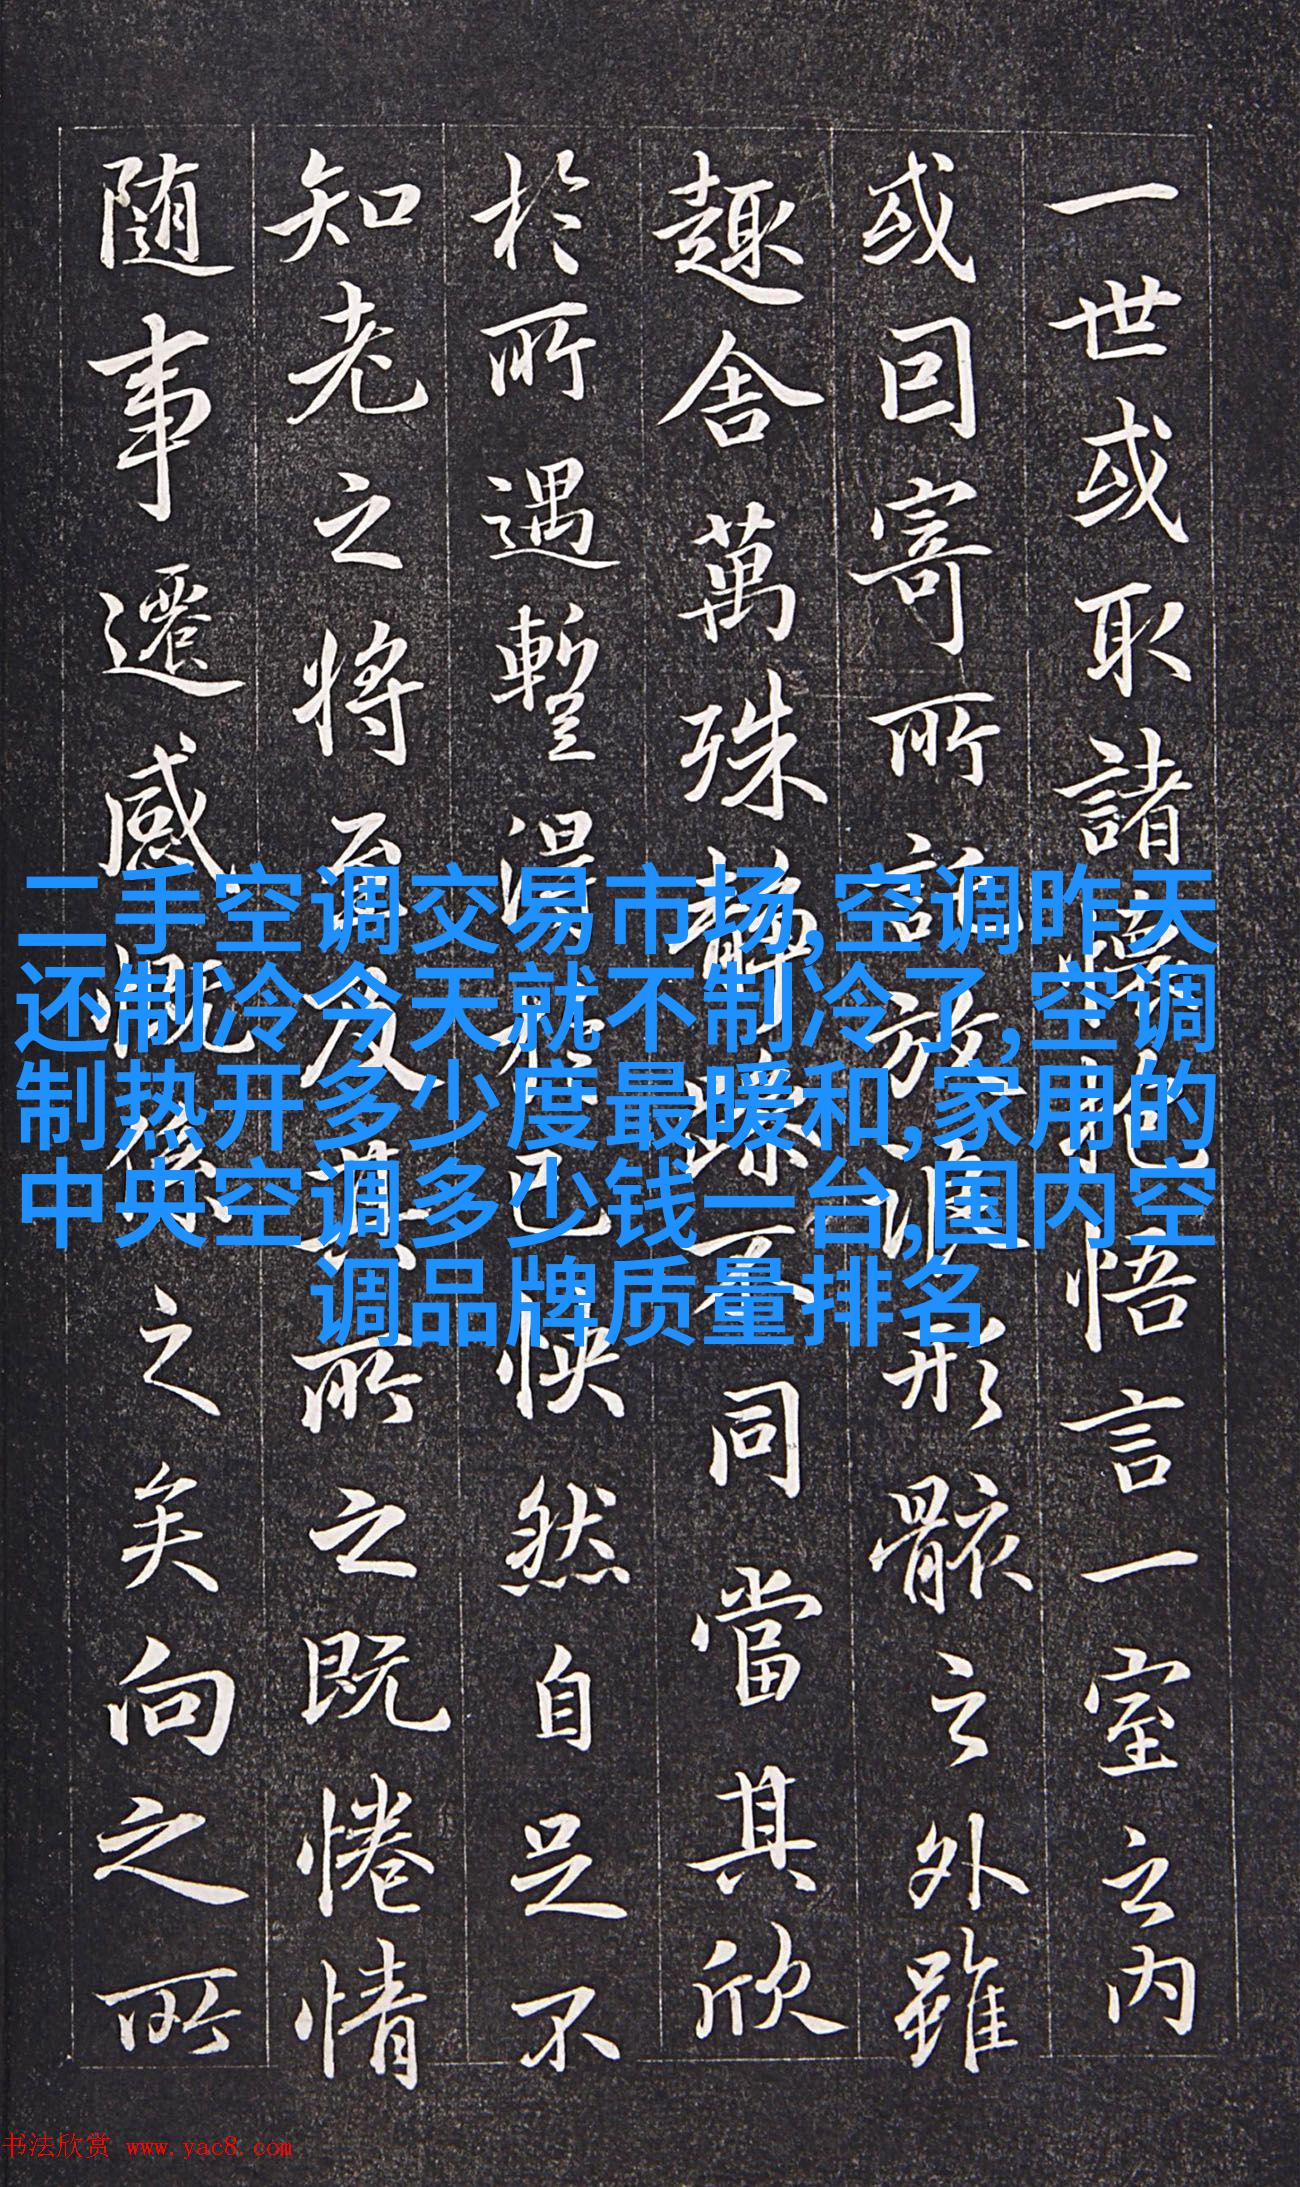 一世或取諸懷抱悟言一室之内
或因寄所託放浪形骸之外雖
趣舍萬殊靜躁不同當其欣
於所遇暫得於己怏然自足不
知老之將至及其所之既惓情
随事遷感慨係之矣向之所
二手空调交易市场,空调昨天
还制冷今天就不制冷了,空调
制热开多少度最暖和,家用的
中央空调多少钱一台,国内空
调品牌质量排名
书法欣赏 www.yac8.com